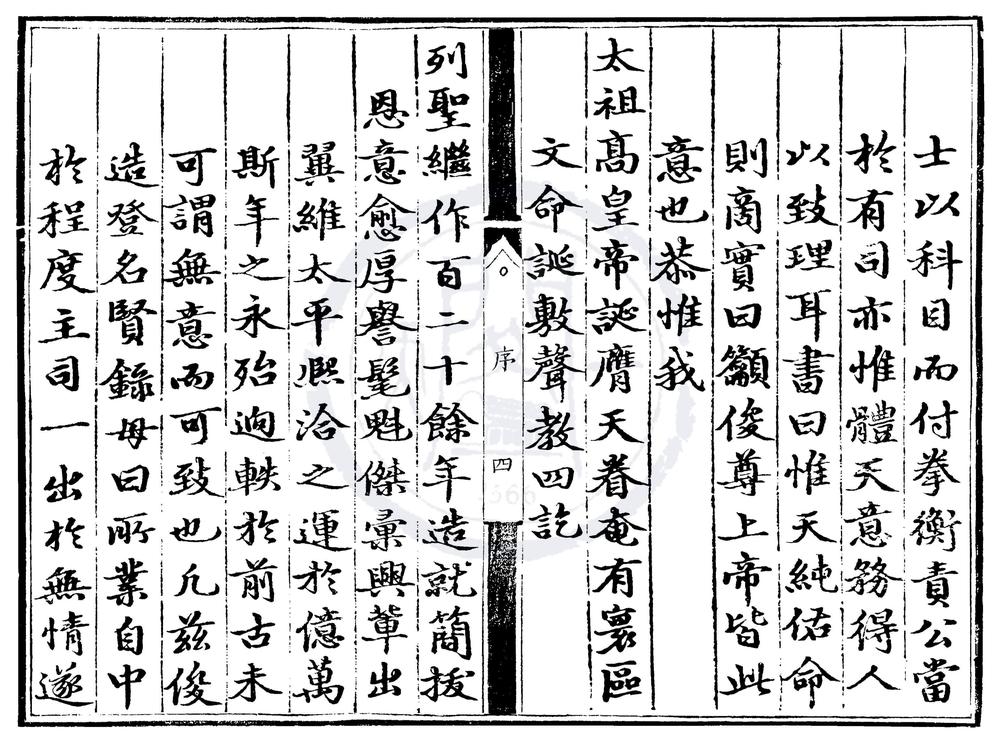 士以科目而付拳衡責公當
於有司亦惟體天意務得人
以致理耳書曰惟天純佑命
則商實曰籲俊尊上帝皆此
意也恭惟我
太祖髙皇帝誕膺天眷奄有寰區
文命誕敷聲教四訖
序
四
列聖繼作百二十餘年造就簡拔
恩意愈厚譽髦魁傑彙興軰出
翼維太平熈洽之運於億萬
斯年之永殆逈軼於前古未
可謂無意而可致也凡兹俊
造登名賢録毋曰所業自中
於程度主司一出於無情遂